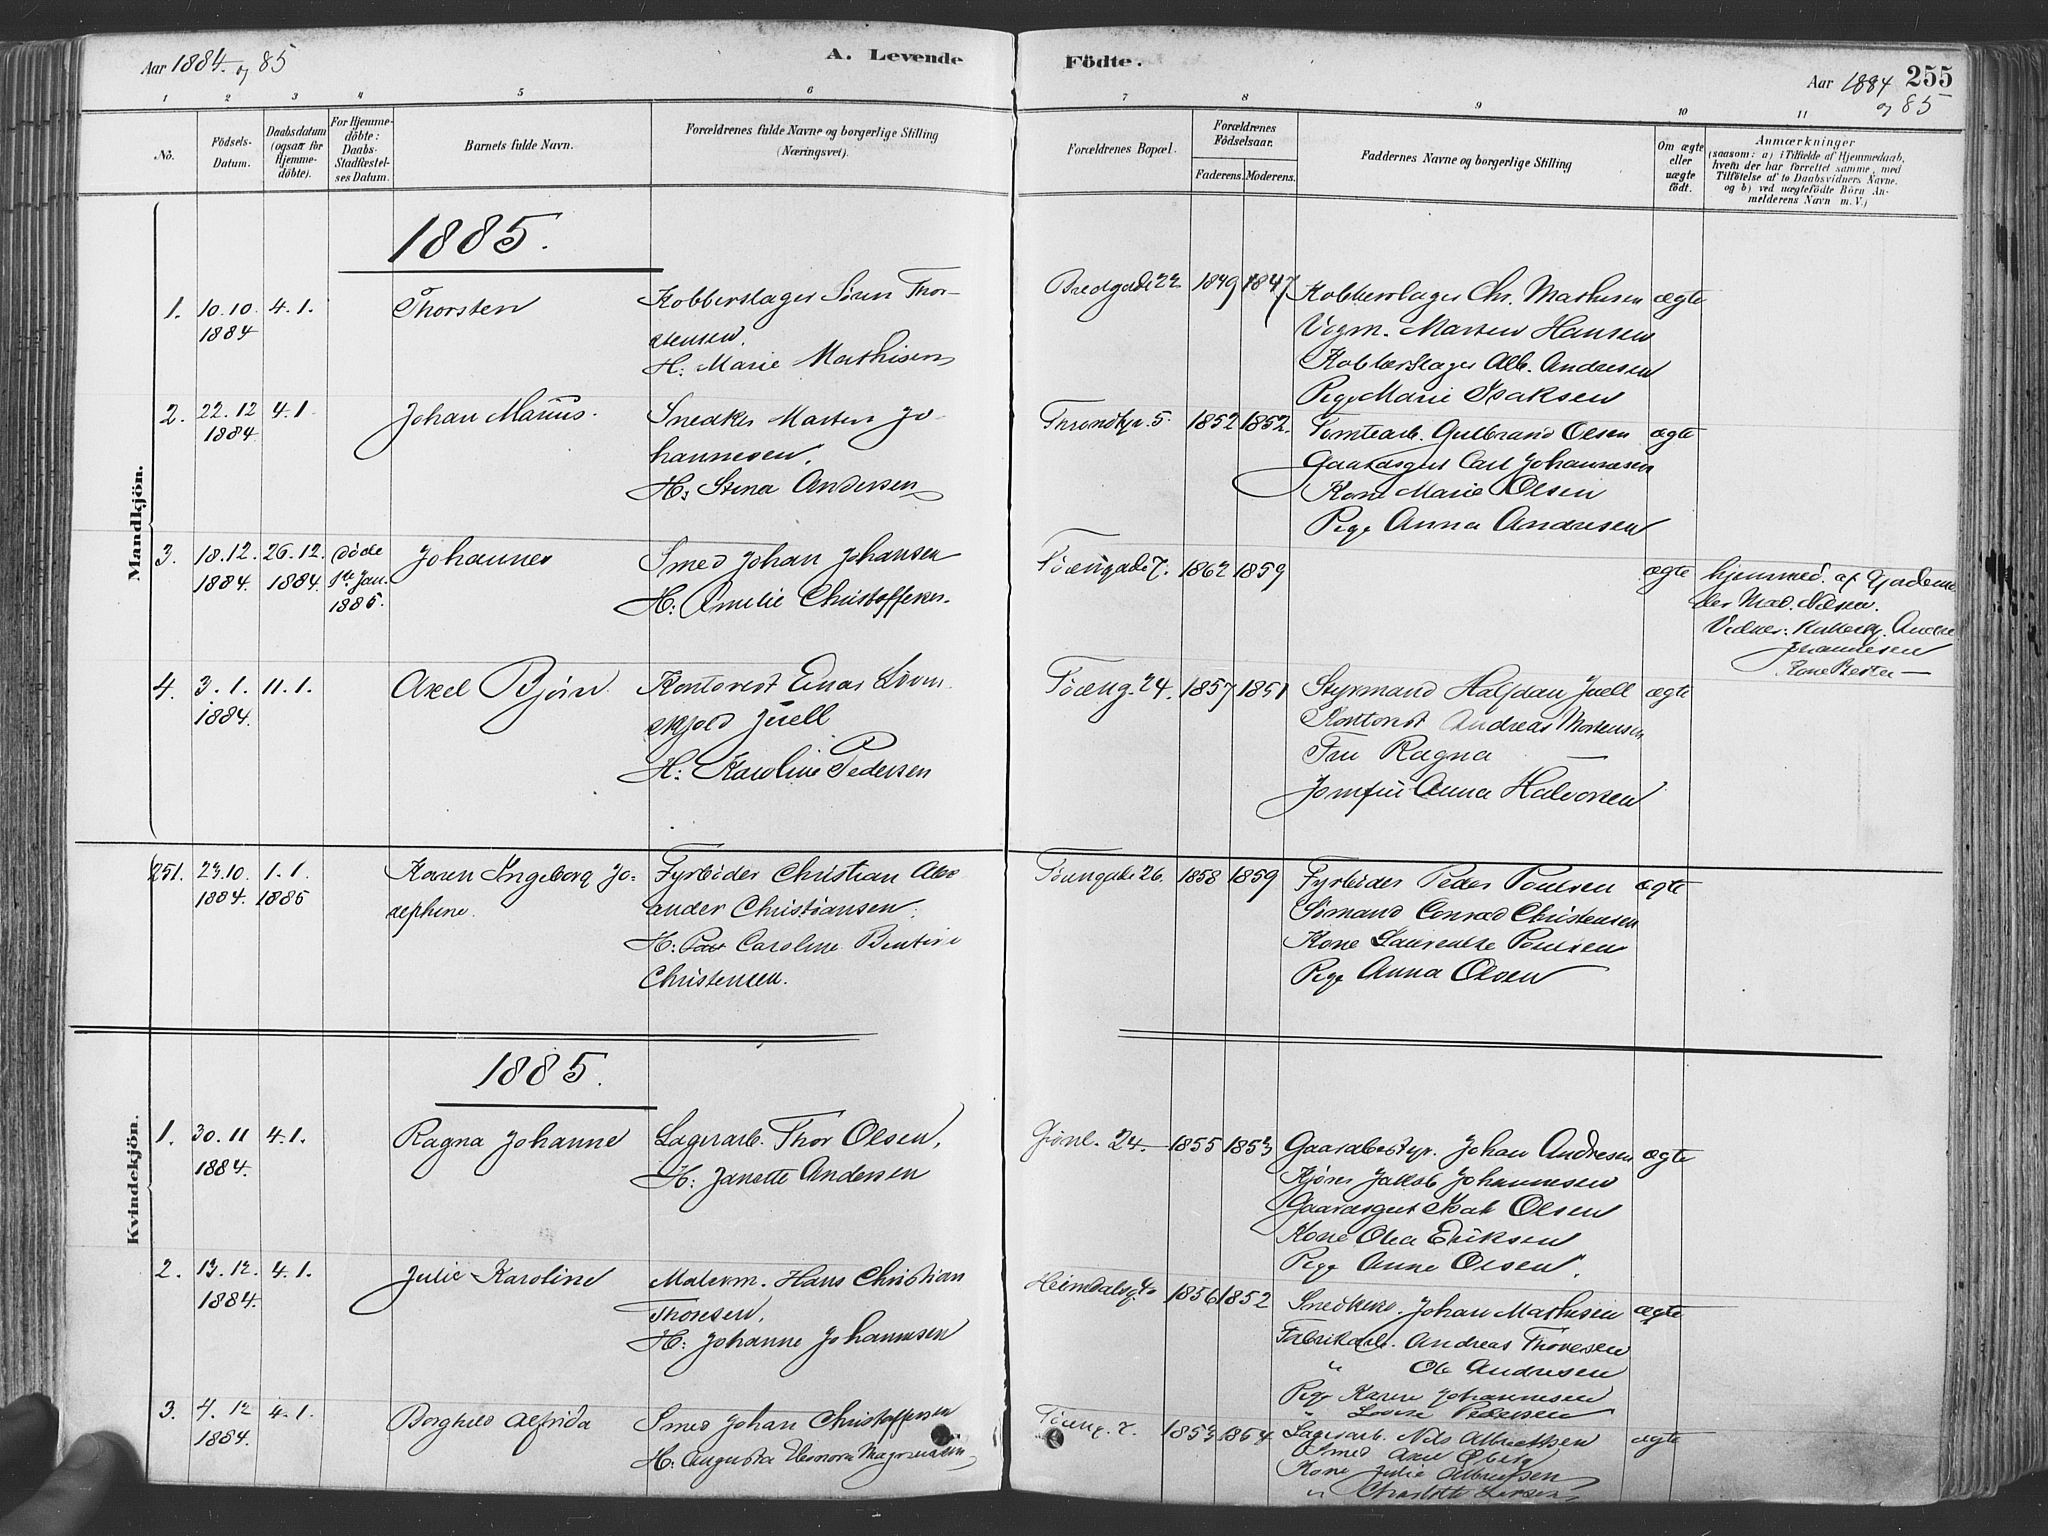 Aar 1884. og 85
A. Levende Födte.
Aar 1884 og 85
255
1 2 3 4 5 6 7 8 9 10 11
Nö.
Födsels-Datum.
Daabsdatum (ogsaa for Hjemme-döbte).
For Hjemme-döbte: Daabs-Stadfæstel-ses Datum.
Barnets fulde Navn.
Forældrenes fulde Navne og borgerlige Stilling (Næringsvei).
Forældrenes Bopæl.
Forældrenes Födselsaar.
Faderens. Moderens.
Faddernes Navne og borgerlige Stilling
Om ægte eller uægte födt.
Anmærkninger
(saasom: a) i Tilfælde af Hjemmedaab,
hvem der har forrettet samme, med
Tilföielse af to Daabsvidners Navne,
og b) ved uægtefödte Börn An-
melderens Navn m. V.)
Mandkjön.
1885.
1. 10.10. 1884 4.1. Thorsten
Kobberslager Sören Thor-
stensen.
H: Marie Mathisen
Bredgade 22 1849 1847
Kobberslager Chr. Mathisen ægte
Vogm. Marten Hansen
Kobberslager Alb. Andresen
Pige Marie Isaksen
2. 22.12 1884 4.1. Johan Marius.
Snedker Marten Jo-
hannesen.
H: Stina Andersen
Throndhj. 5. 1852 1852.
Tomtearb. Gulbrand Olsen ægte
Gaardsgut Carl Johannesen
Kone Marie Olsen
Pige Anna Andresen
3. 18.12. 1884 26.12. 1884. döde Jan. 1885. Johannes
Smed Johan Johansen
H: Amelie Christoffersen.
Töiengade 7. 1862 1859 ægte
hjemmed. af Gjordemo
der Mad. Nilsen.
Vidner:
Johannesen
Kone
4. 3.1. 1884. 11.1. Axel Björn
Kontorist Einar Lövenskjold Juell
H: Karoline Pedersen
Töieng. 24. 1857 1851
Styrmand Halfdan Juell ægte
Kontorist Andreas Mortensen
Fru Ragna —
Jomfru Anna Halvorsen
251. 23.10. 1884. 1.1. 1885 Karen Ingeborg Jo-
sephine.
Fyrböder Christian Alex
ander Christiansen.
H: Caroline Bentine
Christensen.
Töiengade 26. 1858 1859
Fyrböder Peder Poulsen ægte
Sömand Conrad Christensen
Kone Laurentze Poulsen
Pige Anna Olsen
Kvindekjön.
1885.
1. 30.11 1884. 4.1. Ragna Johanne
Lagerarb. Thor Olsen,
H: Janette Andersen
Grönl. 24. 1855 1853
Gaardbestyr. Johan Andresen ægte
Kjörer Jakob Johannesen
Gaardsgut Isak Olsen
Kone Olea Eriksen
Pige Anne Olsen.
2. 13.12. 1884. 4.1. Julie Karoline
Malerm. Hans Christian
Thoresen,
H: Johanne Johannesen
Heimdalsg. 1856 1852
Snedker. Johan Mathisen ægte
Fabrikarb. Andreas Thoresen
" Ole Andresen
Pige Karen Johannesen
" Lovise Pedersen
3. 4.12 1884. 4.1. Borghild Alfrida
Smed Johan Christoffersen
H: Augusta Elenora Magnussen
Töieng. 7. 1853 1864
Lagerarb. Nils Albrettsen ægte
Smed Axel Öberg
Kone Julie Albrettsen
" Charlotte Larsen